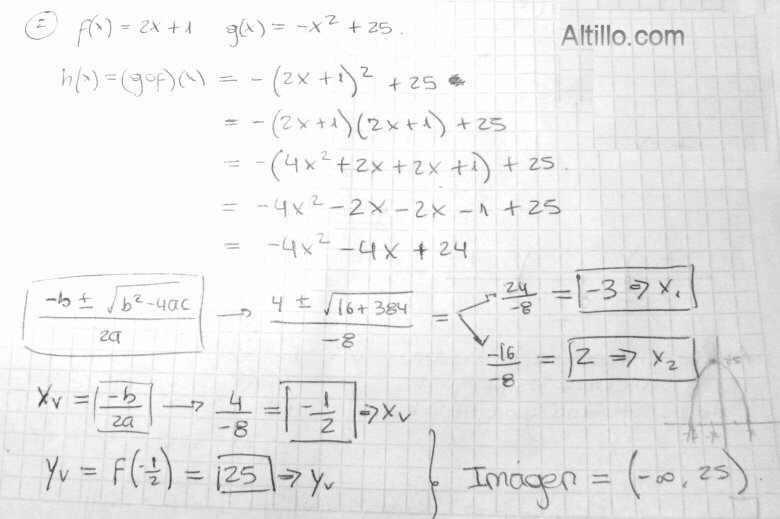 2) f(x) = 2x+1 g(x) = -x² + 25.
Altillo.com
h(x) = (gof)(x) = -(2x+1)² + 25
= -(2x+1)(2x+1) + 25
= -(4x²+2x+2x+1) + 25.
= -4x² -2x -2x -1 +25
= -4x² -4x + 24
-b ± √b²-4ac / 2a → 4 ± √16+384 / -8 = 24/-8 = -3 ⇒ x₁
-16/-8 = 2 ⇒ x₂
Xv = -b/2a → 4/-8 = -1/2 ⇒ Xv
Yv = f(-1/2) = 25 ⇒ Yv } Imágen = (-∞, 25)